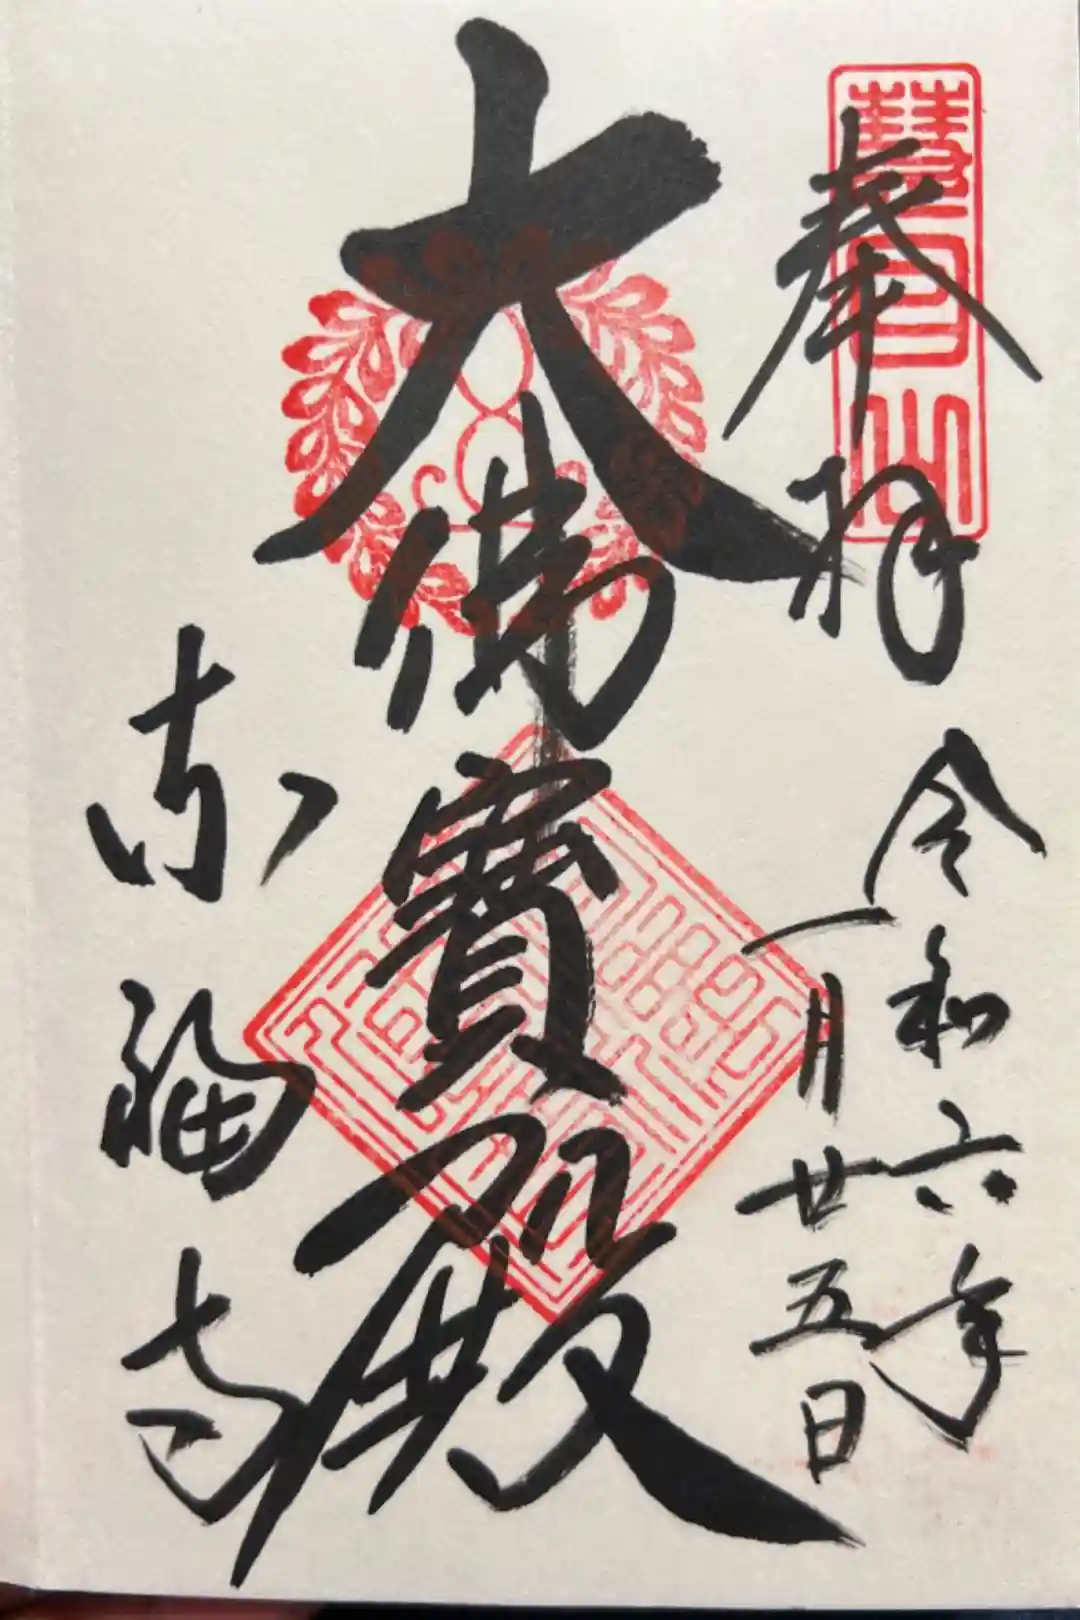 慧日山
奉拝
令和六年
一月廿五日
大佛寶殿
東福寺